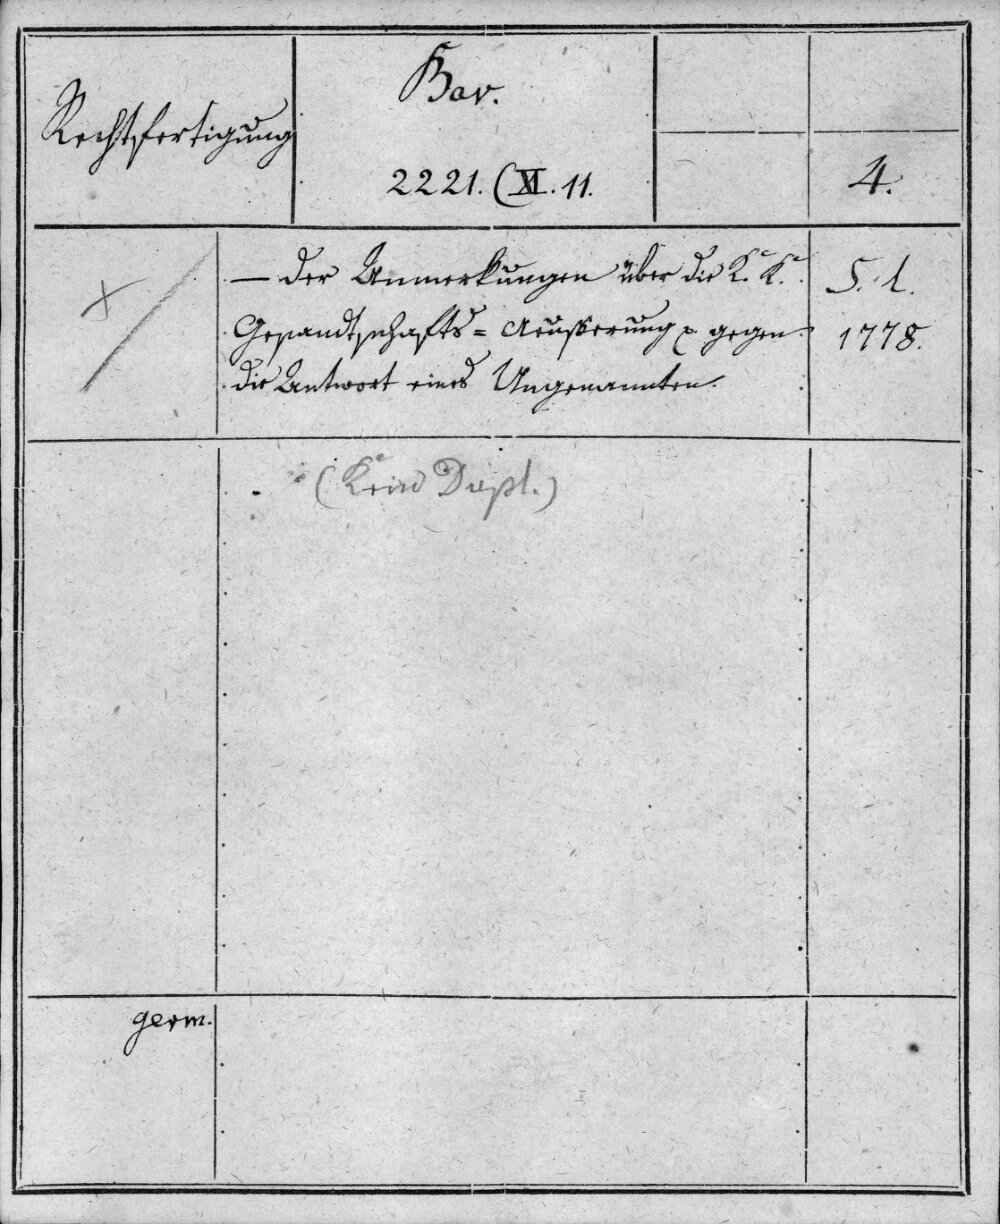 Rechtsfertigung
Bav.
2221. (XI. 11.
4.
— der Anmerkungen über die K. K.
Gesandtschafts = Aeußerung p. gegen
die Antwort eines Ungenannten.
S. l.
1778.
(Kein Dupl.)
germ.